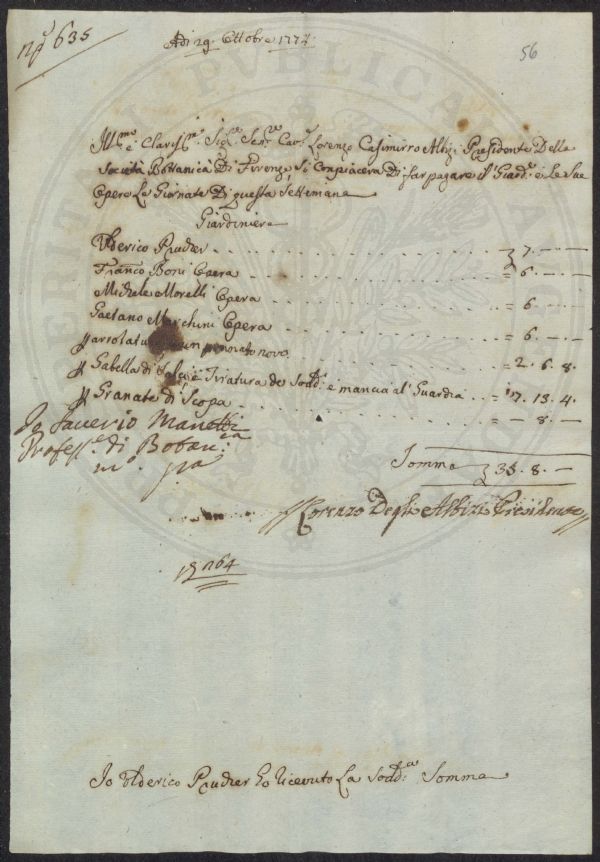 Nº 635
Adi 29. Ottobre 1774.
56
Ill.mo e Clariss.mo Sig.re Sen.re Cav.re Lorenzo Casimirro Albizi Presidente Della
Società Bottanica Di Firenze Si Conpiacerà Di far pagare il Giard.re e Le Sue
Opere Le Giornate Di questa Settimana
Giardiniera
Ulderico Prucker . . . 7. — —
Franco Boni Opera . . . = 6. — —
Michele Morelli Opera . . . = 6. — —
Gaetano Marchini Opera . . . = 6. — —
p arrotatura un pennato novo . . . = 2. 6. 8.
p Gabella di e Tiratura de Sodd.i e mancia al Guardia . . = 7. 13. 4.
p Granate di Scopa . . . — 8. —
Io Saverio Manetti
Profess.e di Botan.ca
m.o p.a
Somma 35. 8. —
Lorenzo Degl Albizi Presidente
264
Io Ulderico Prucker ho ricevuto La Sodd.a Somma